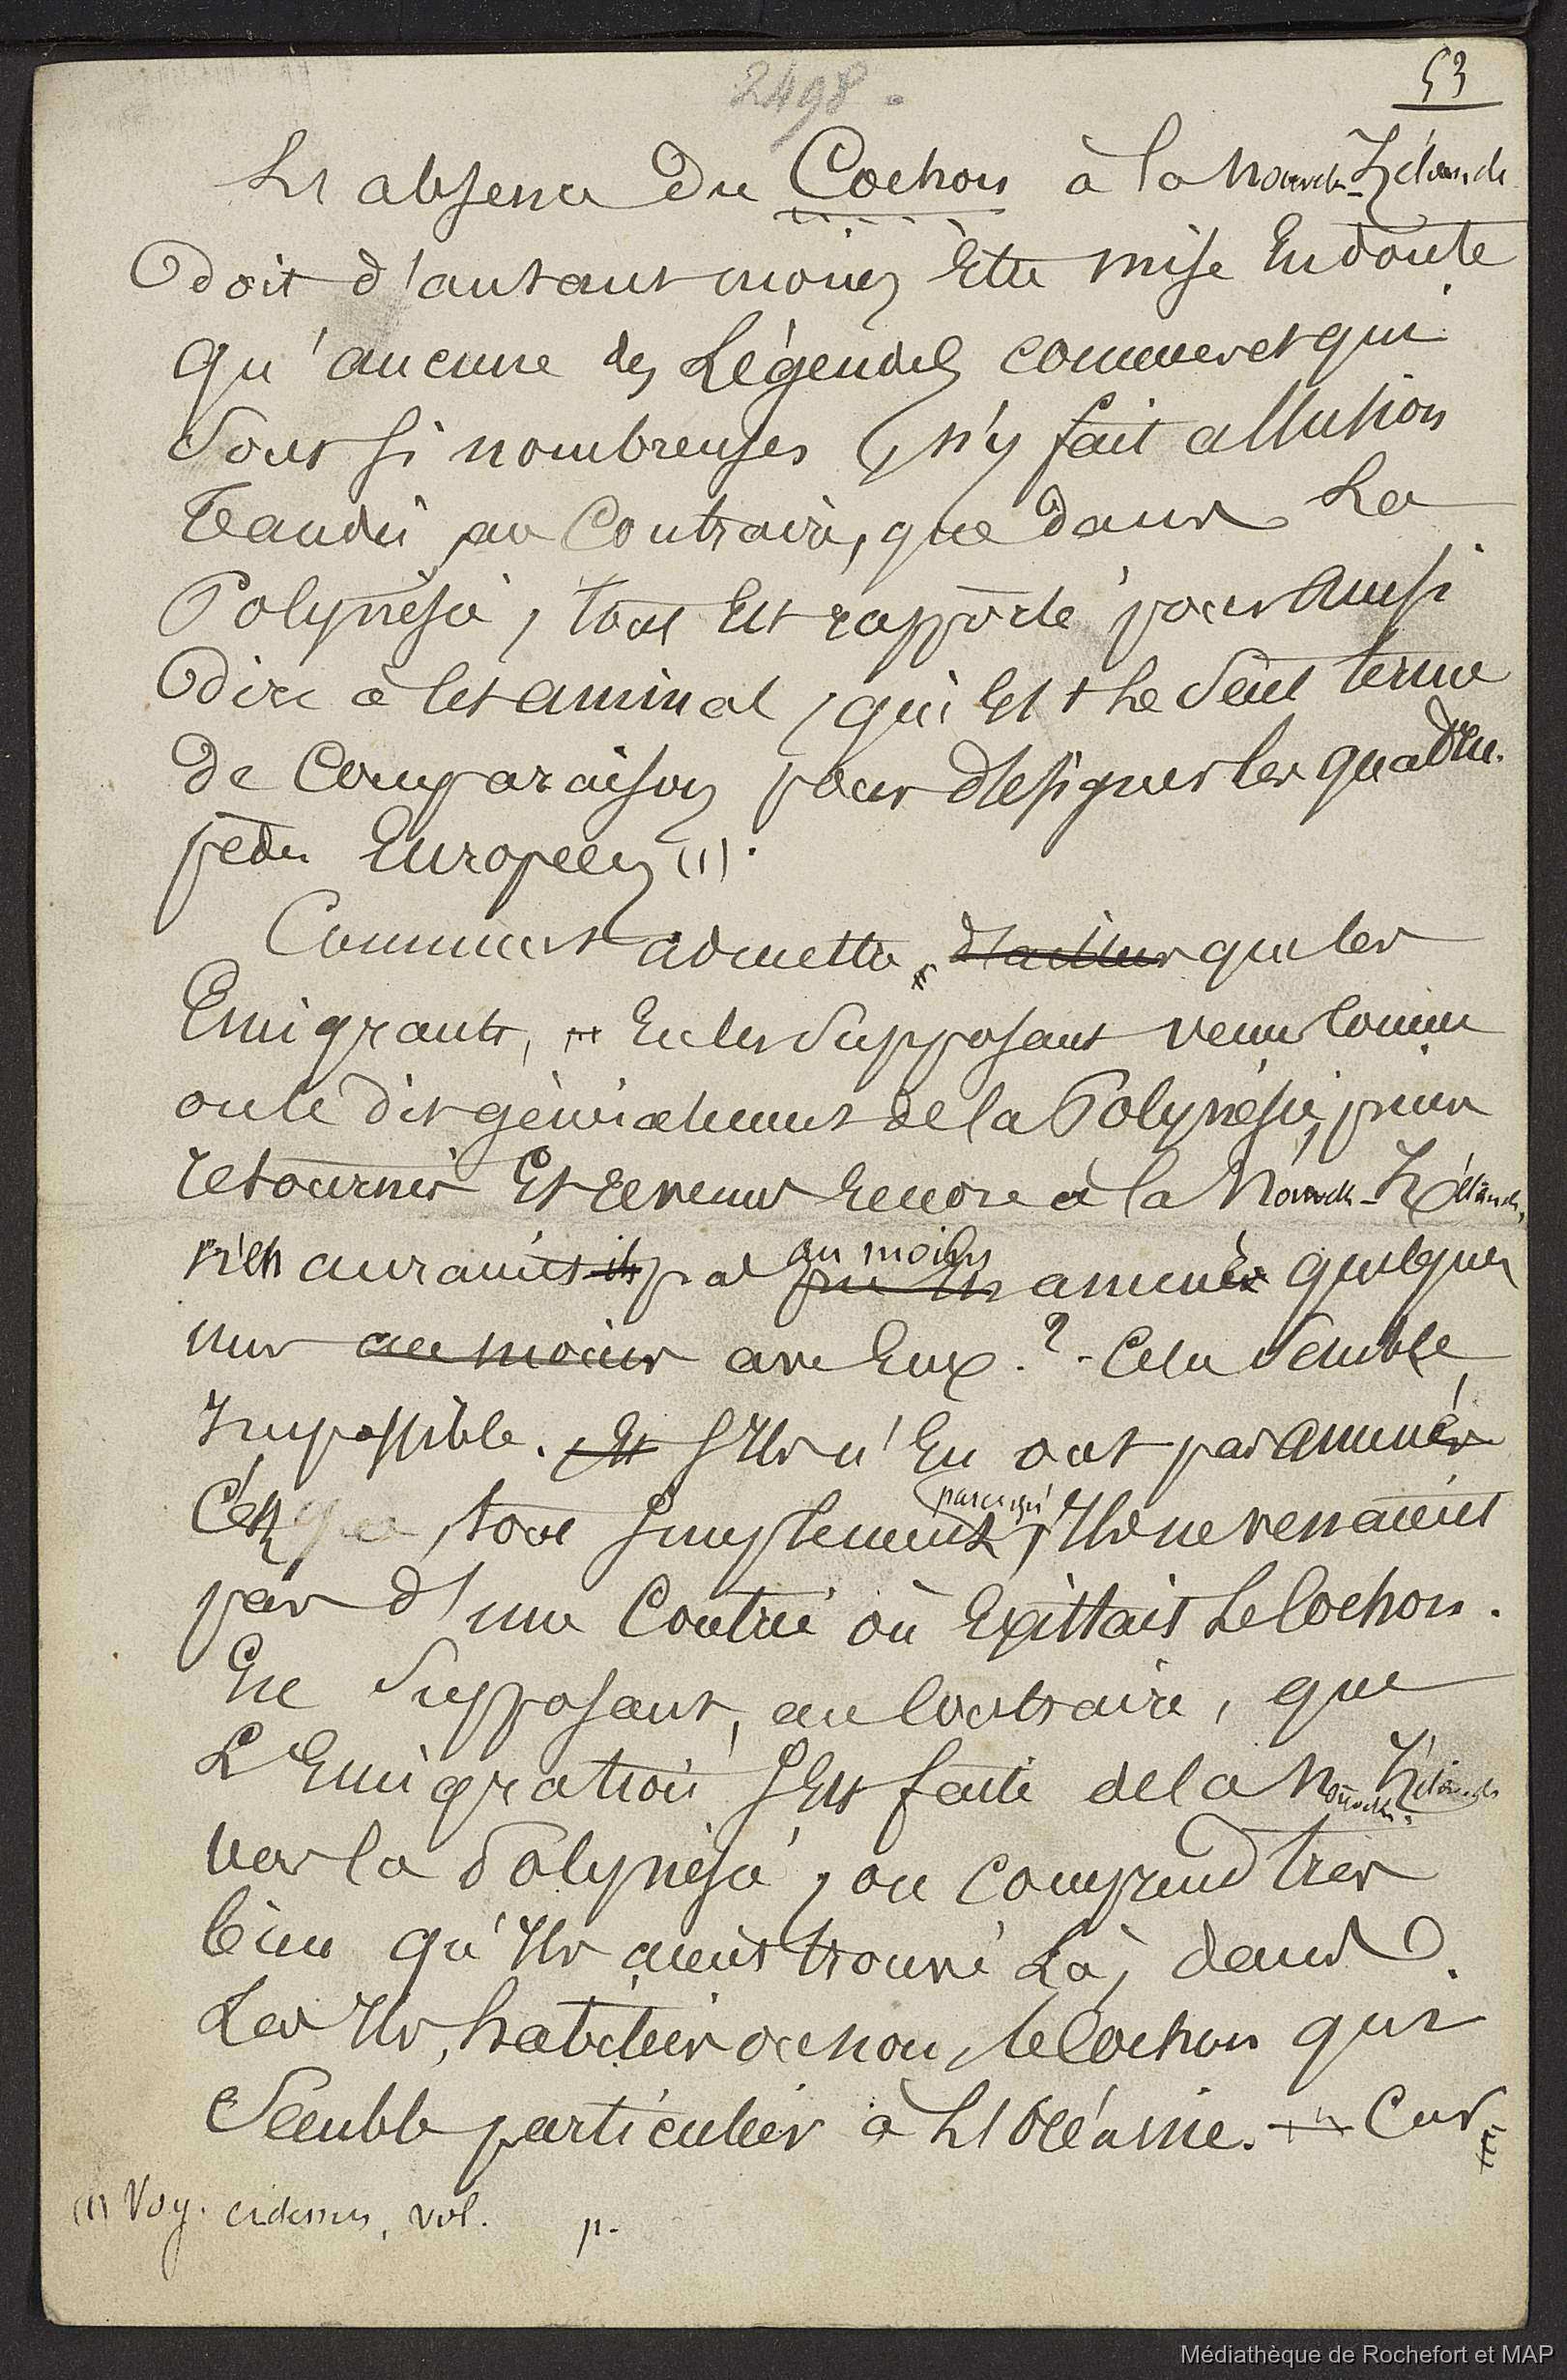 2498.
53
L'absence du Cochon à la Nouvelle-Zélande
doit d'autant moins être mise en doute
qu'aucune des Légendes connues et qui
sont si nombreuses, n'y fait allusion
Tandis, au Contraire, que dans la
Polynésie, tout est rapporté pour ainsi
dire à cet animal, qui est le seul terme
de Comparaison pour désigner les quadru-
pèdes Européens (1).
Comment admettre d'ailleurs que les
Emigrants, en les supposant venus comme
on le dit généralement de la Polynésie, puis
retournés et revenus encore à la Nouvelle-Zélande,
n'en auraient ils pas au moins pu en amener quelques
uns au moins avec eux ? - Cela semble
Impossible. Et s'ils n'en ont pas amenés
C'est que, tout simplement, parcequ'ils ne venaient
pas d'une Contrée où existait le Cochon.
En supposant, au Contraire, que
L'Emigration s'est faite de la Nouvelle-Zélande
vers la Polynésie, on comprend très
bien qu'ils aient trouvé là, dans
les Iles, habitées ou non, le Cochon qui
semble particulier à L'Océanie. Car
(1) Voy. ci dessus, vol. p.
Médiathèque de Rochefort et MAP